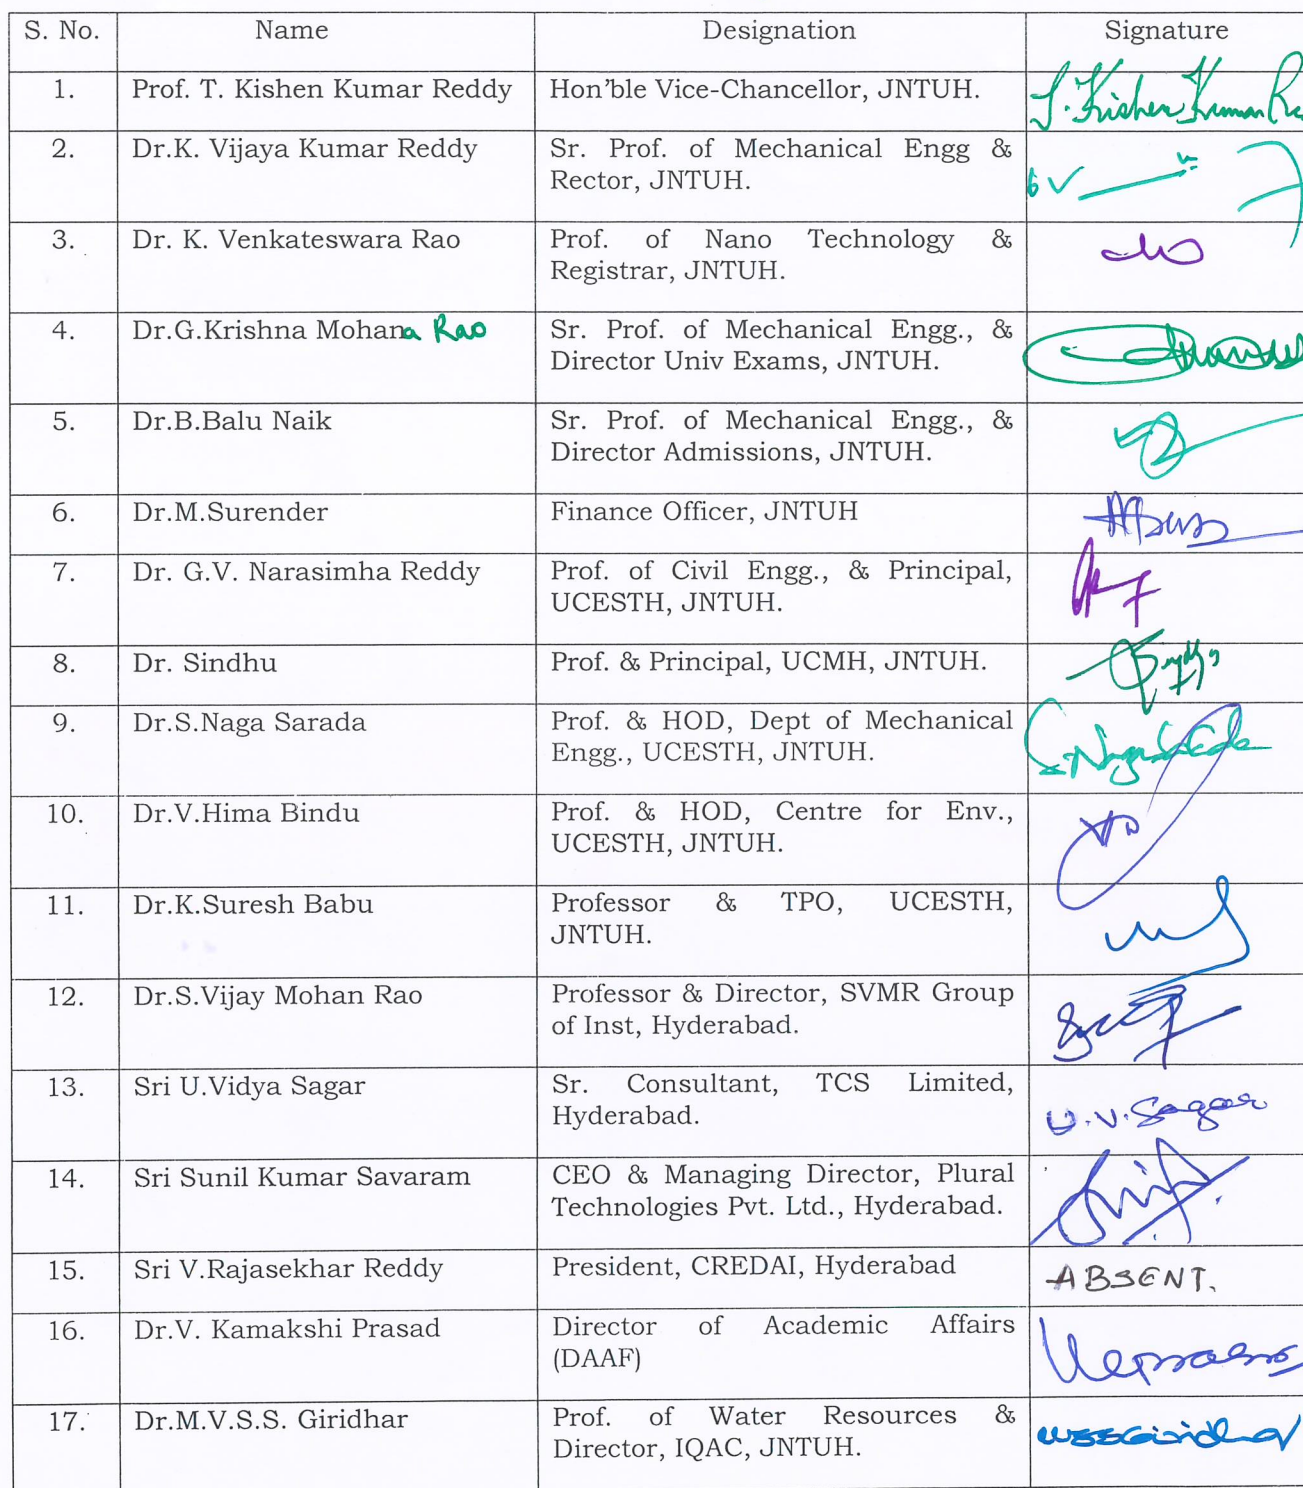 S. No. Name Designation Signature
1. Prof. T. Kishen Kumar Reddy Hon'ble Vice-Chancellor, JNTUH. T. Kishen Kumar
2. Dr.K. Vijaya Kumar Reddy Sr. Prof. of Mechanical Engg &
Rector, JNTUH.
3. Dr. K. Venkateswara Rao Prof. of Nano Technology &
Registrar, JNTUH.
4. Dr.G.Krishna Mohana Rao Sr. Prof. of Mechanical Engg., &
Director Univ Exams, JNTUH.
5. Dr.B.Balu Naik Sr. Prof. of Mechanical Engg., &
Director Admissions, JNTUH.
6. Dr.M.Surender Finance Officer, JNTUH
7. Dr. G.V. Narasimha Reddy Prof. of Civil Engg., & Principal,
UCESTH, JNTUH.
8. Dr. Sindhu Prof. & Principal, UCMH, JNTUH.
9. Dr.S.Naga Sarada Prof. & HOD, Dept of Mechanical
Engg., UCESTH, JNTUH.
10. Dr.V.Hima Bindu Prof. & HOD, Centre for Env.,
UCESTH, JNTUH.
11. Dr.K.Suresh Babu Professor & TPO, UCESTH,
JNTUH.
12. Dr.S.Vijay Mohan Rao Professor & Director, SVMR Group
of Inst, Hyderabad.
13. Sri U.Vidya Sagar Sr. Consultant, TCS Limited,
Hyderabad. U.V. Sagar
14. Sri Sunil Kumar Savaram CEO & Managing Director, Plural
Technologies Pvt. Ltd., Hyderabad.
15. Sri V.Rajasekhar Reddy President, CREDAI, Hyderabad ABSENT.
16. Dr.V. Kamakshi Prasad Director of Academic Affairs
(DAAF)
17. Dr.M.V.S.S. Giridhar Prof. of Water Resources &
Director, IQAC, JNTUH.